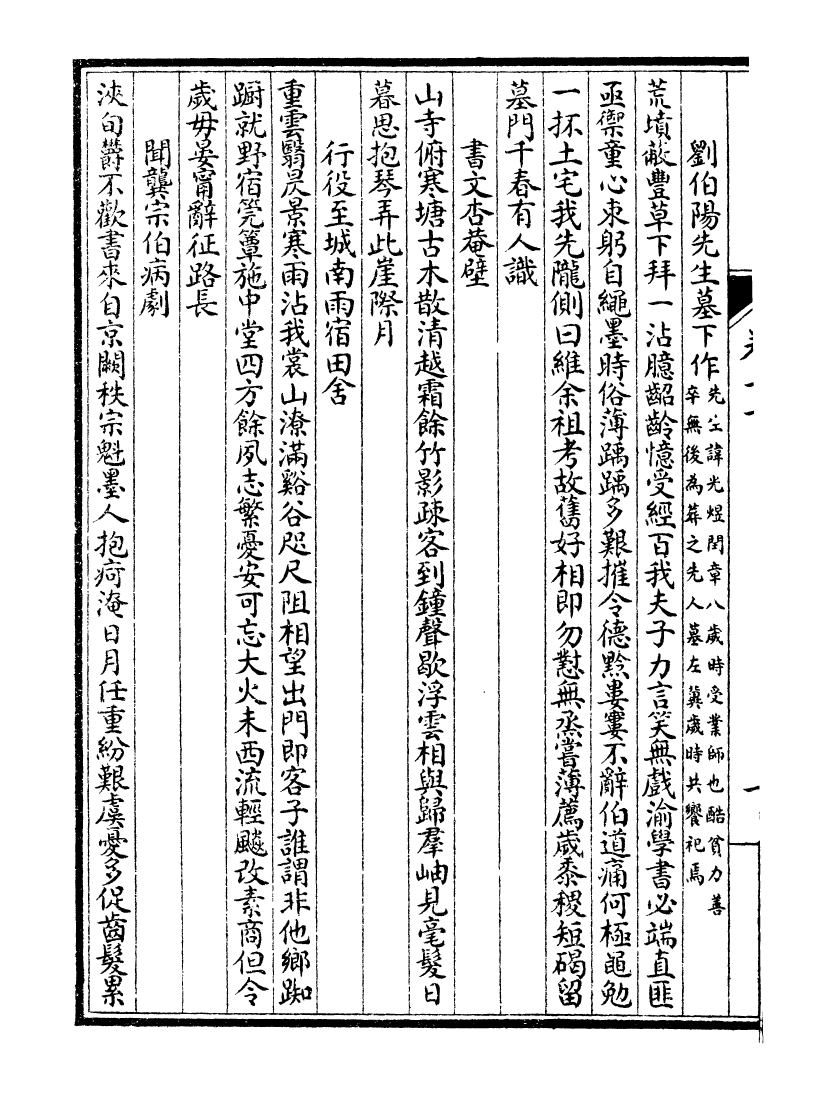 劉伯陽先生墓下作先生諱光煜閏章八歲時受業師也酷貧力善
卒無後為葬之先人墓左冀歲時共饗祀焉
荒墳蔽豐草下拜一沾臆齠齡憶受經百我夫子力言笑無戲渝學書必端直匪
亟禦童心束躬自繩墨時俗薄踽踽多艱摧令德黔婁窶不辭伯道痛何極黽勉
一抔土宅我先隴側曰維余祖考故舊好相即勿懟無烝嘗薄薦歲黍稷短碣留
墓門千春有人識
書文杏菴壁
山寺俯寒塘古木散清越霜餘竹影疎客到鐘聲歇浮雲相與歸羣岫見毫髮日
暮思抱琴弄此崖際月
行役至城南雨宿田舍
重雲翳晨景寒雨沾我裳山潦滿谿谷咫尺阻相望出門即客子誰謂非他鄉踟
蹰就野宿筦簟施中堂四方餘夙志繁憂安可忘大火未西流輕飈改素商但令
歲毋晏甯辭征路長
聞龔宗伯病劇
浹旬鬱不歡書來自京闕秩宗魁墨人抱疴淹日月任重紛艱虞憂多促齒髮累